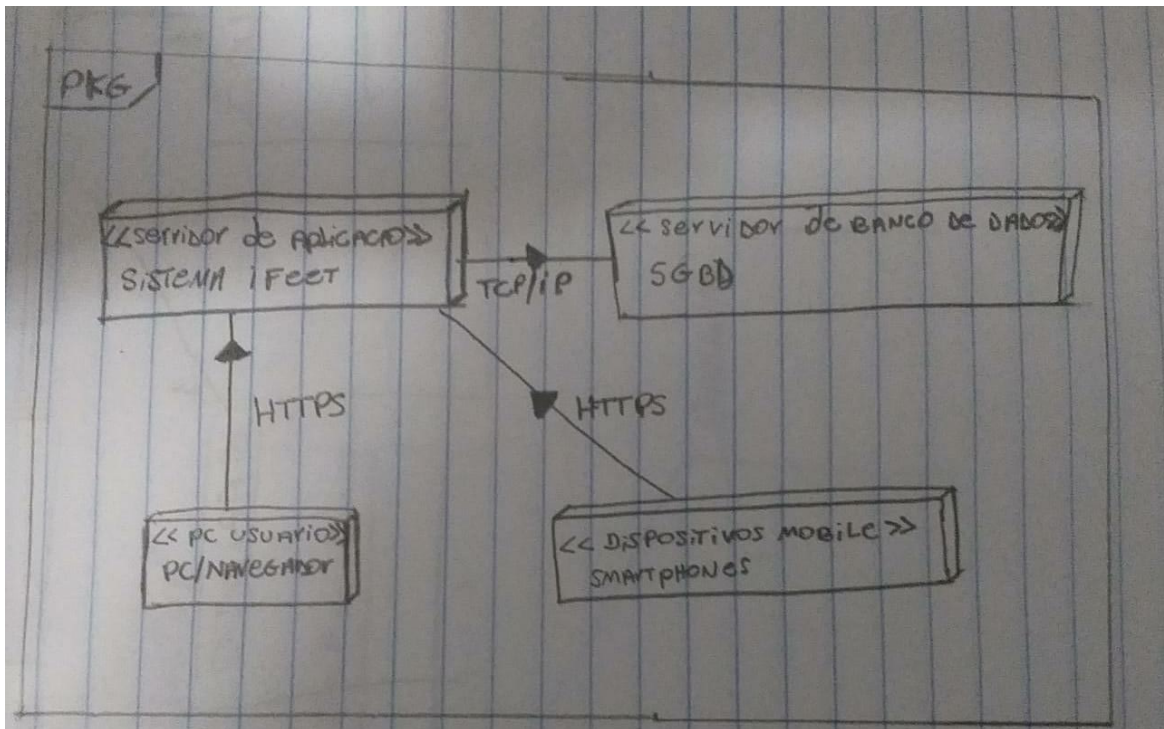 PKG
<<servidor de APLICACAO>>
SISTEMA iFEET
TCP/iP
<<servidor de BANCO DE DADOS>>
SGBD
HTTPS
HTTPS
<<PC USUARIO>>
PC/NAVEGADOR
<<DISPOSITIVOS MOBILE>>
SMARTPHONES